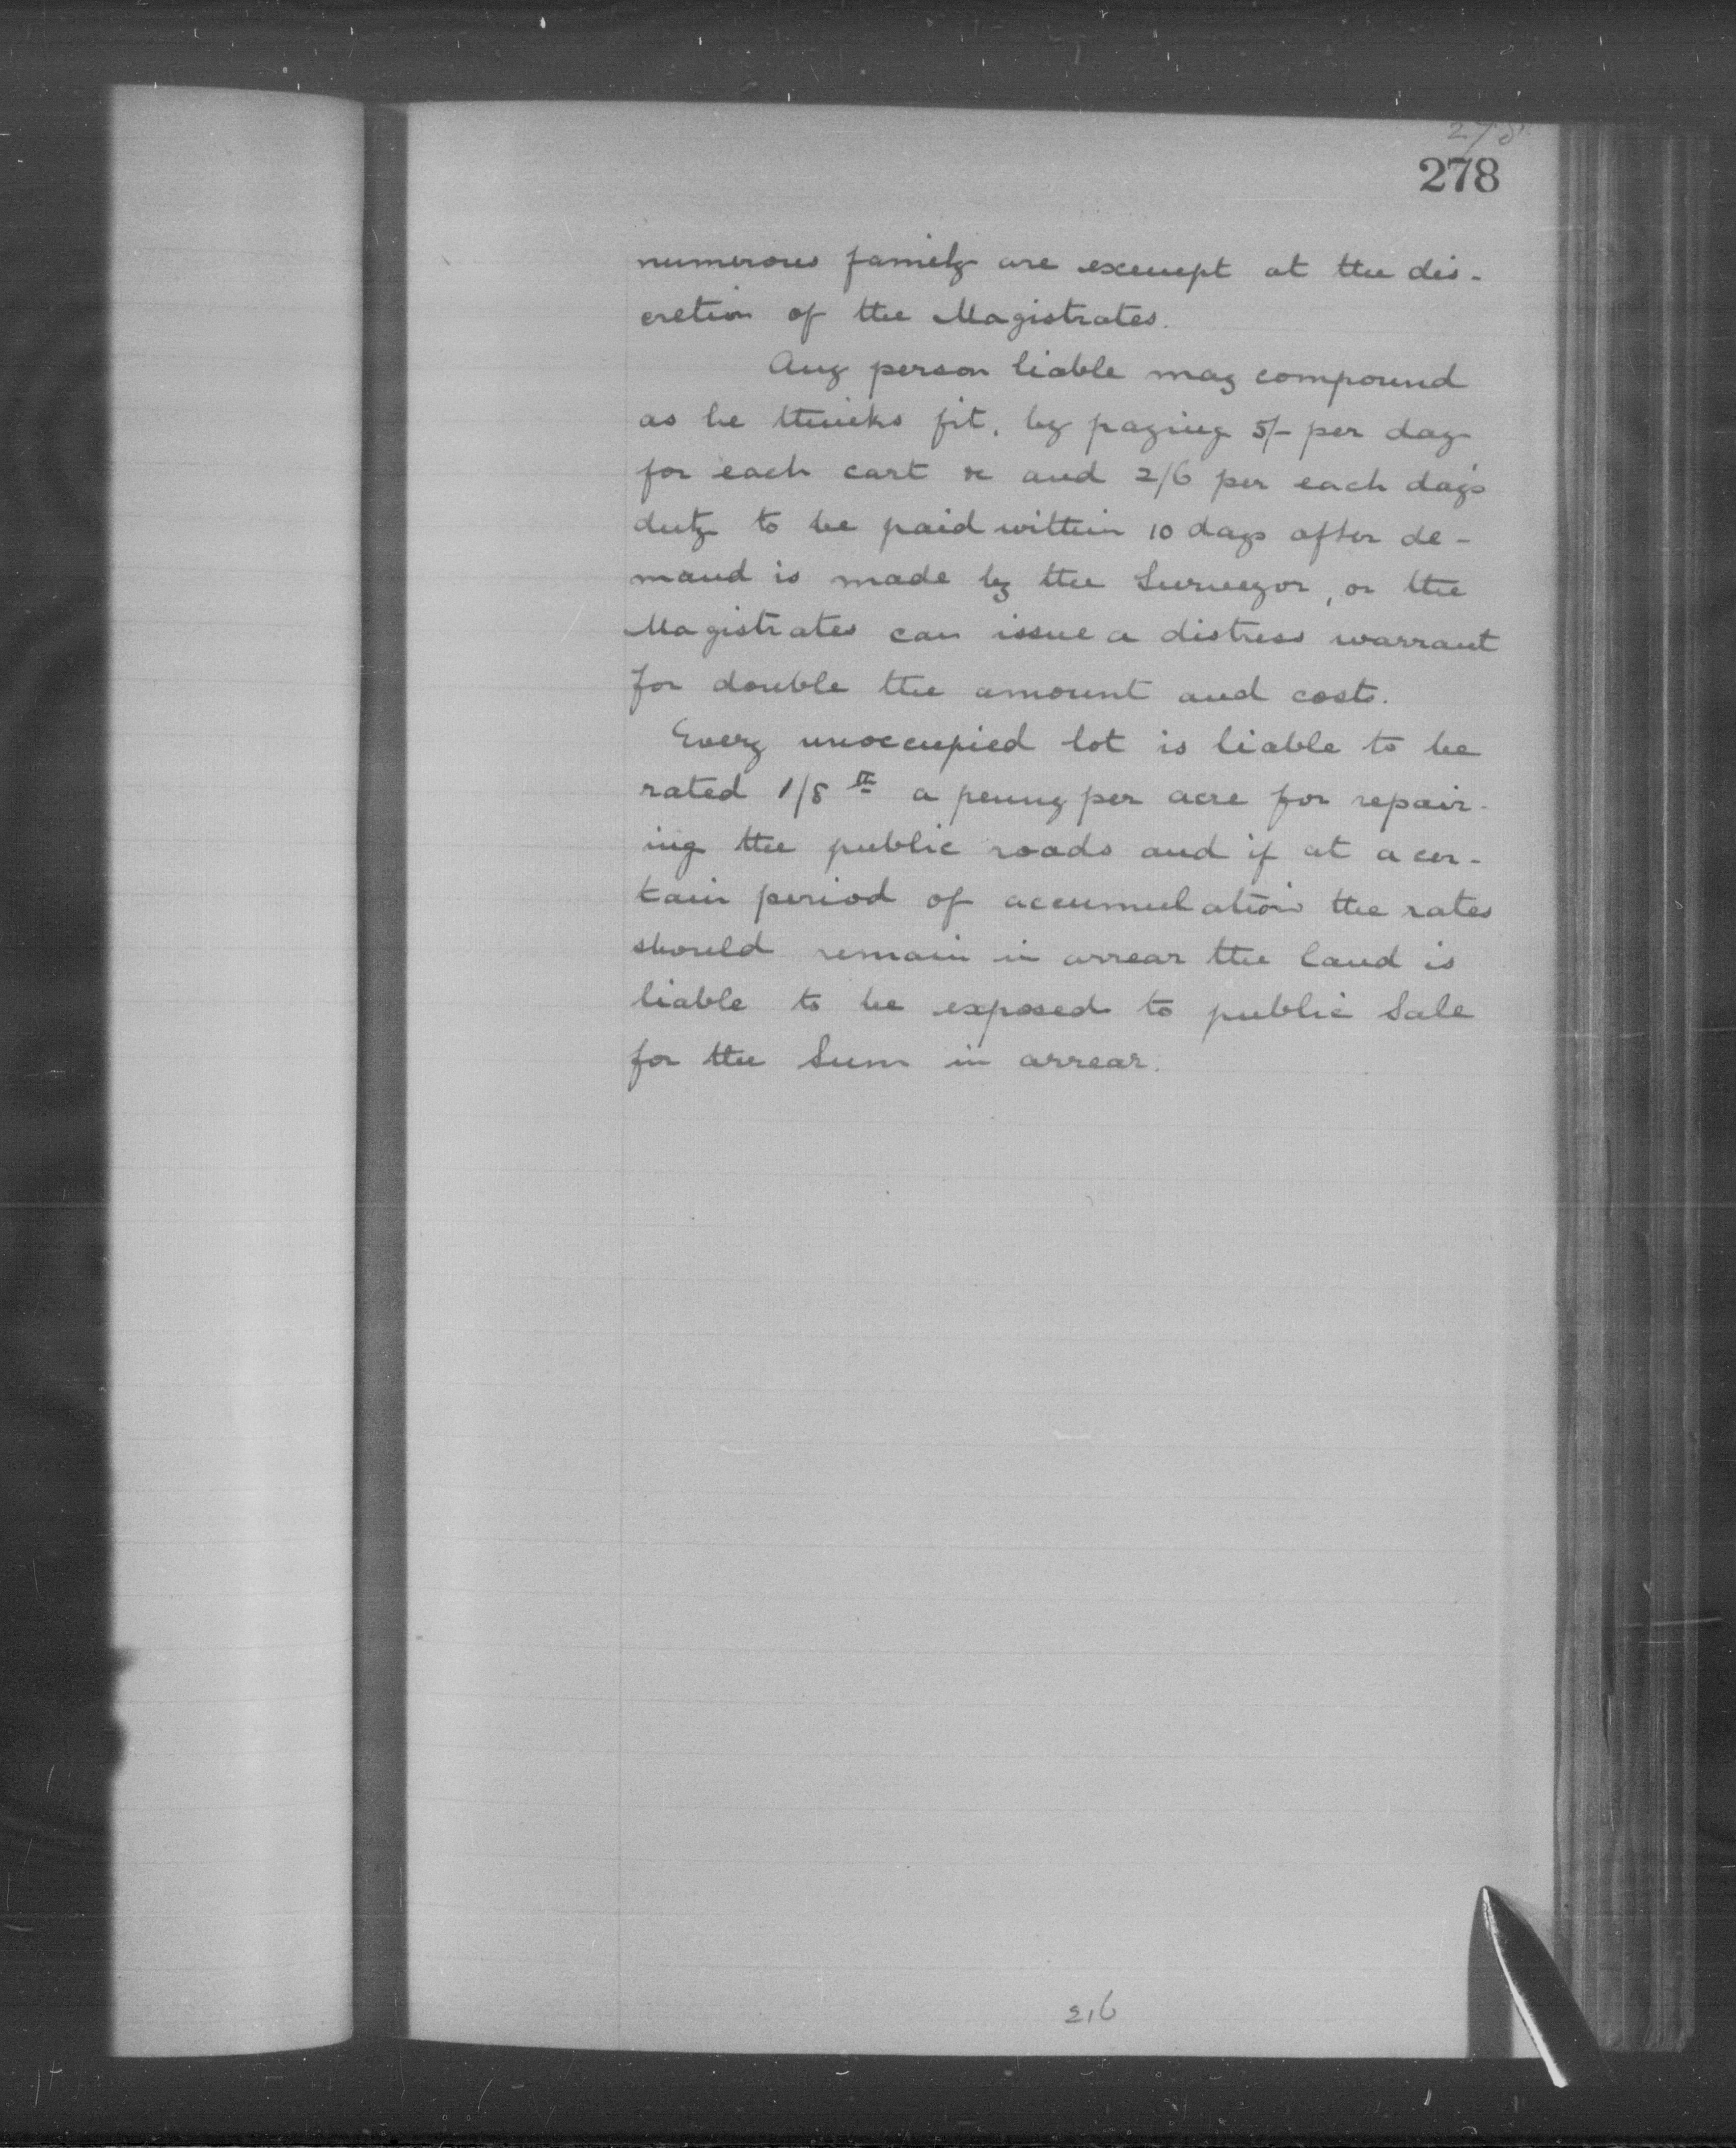 278
278
numerous family are exempt at the dis-
cretion of the Magistrates.
Any person liable may compound
as he thinks fit, by paying 5/- per day
for each cart &c and 2/6 per each day's
duty to be paid within 10 days after de-
mand is made by the Surveyor, or the
Magistrates can issue a distress warrant
for double the amount and costs.
Every unoccupied lot is liable to be
rated 1/8th a penny per acre for repair-
ing the public roads and if at a cer-
tain period of accumulation the rates
should remain in arrear the land is
liable to be exposed to public Sale
for the Sum in arrear.
216